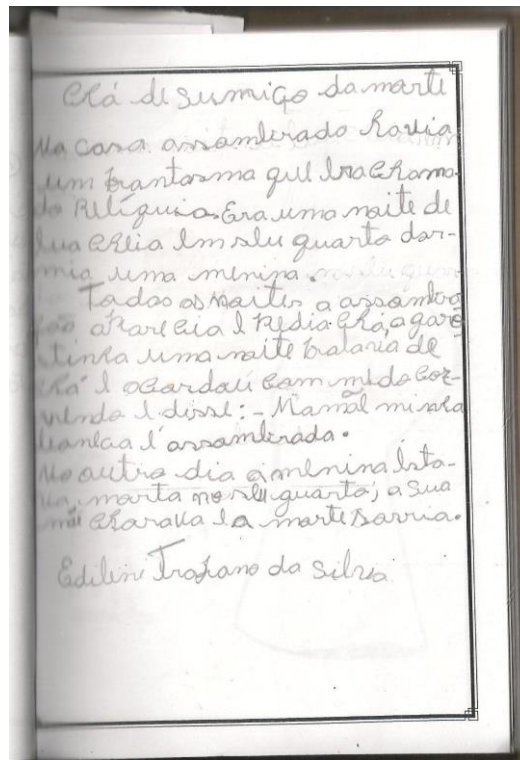 Chá de sumiço da morte
Na casa assombrado havia
um frantasma que era chama-
do Relíquia. Era uma noite de
lua cheia em seu quarto dor-
mia uma menina.
Todas as noites a assombra
ção aparecia e pedia chá, a garo
tinha uma noite trataria de
chá e acordou com medo cor-
rendo e disse: - Mamãe minha
boneca é assombrada.
No outro dia a menina esta-
va morta no seu quarto, a sua
mãe chorava e a morte sorria.
Edilene Trajano da Silva